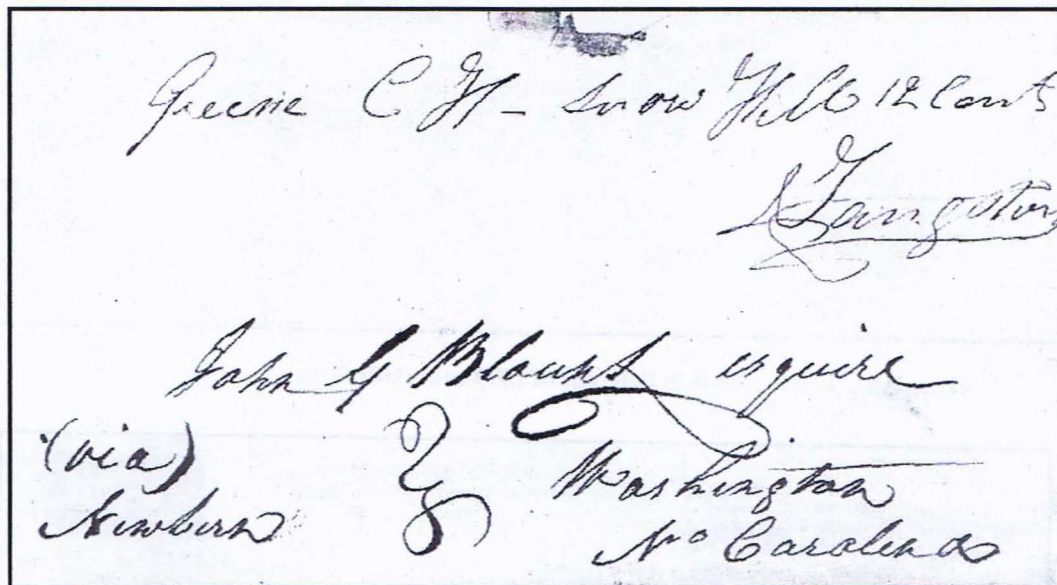 Greene C H - Snow Hill 12 Cents
Langston
John G Blount esquire
(via)
Newbern
Washington
No Carolina